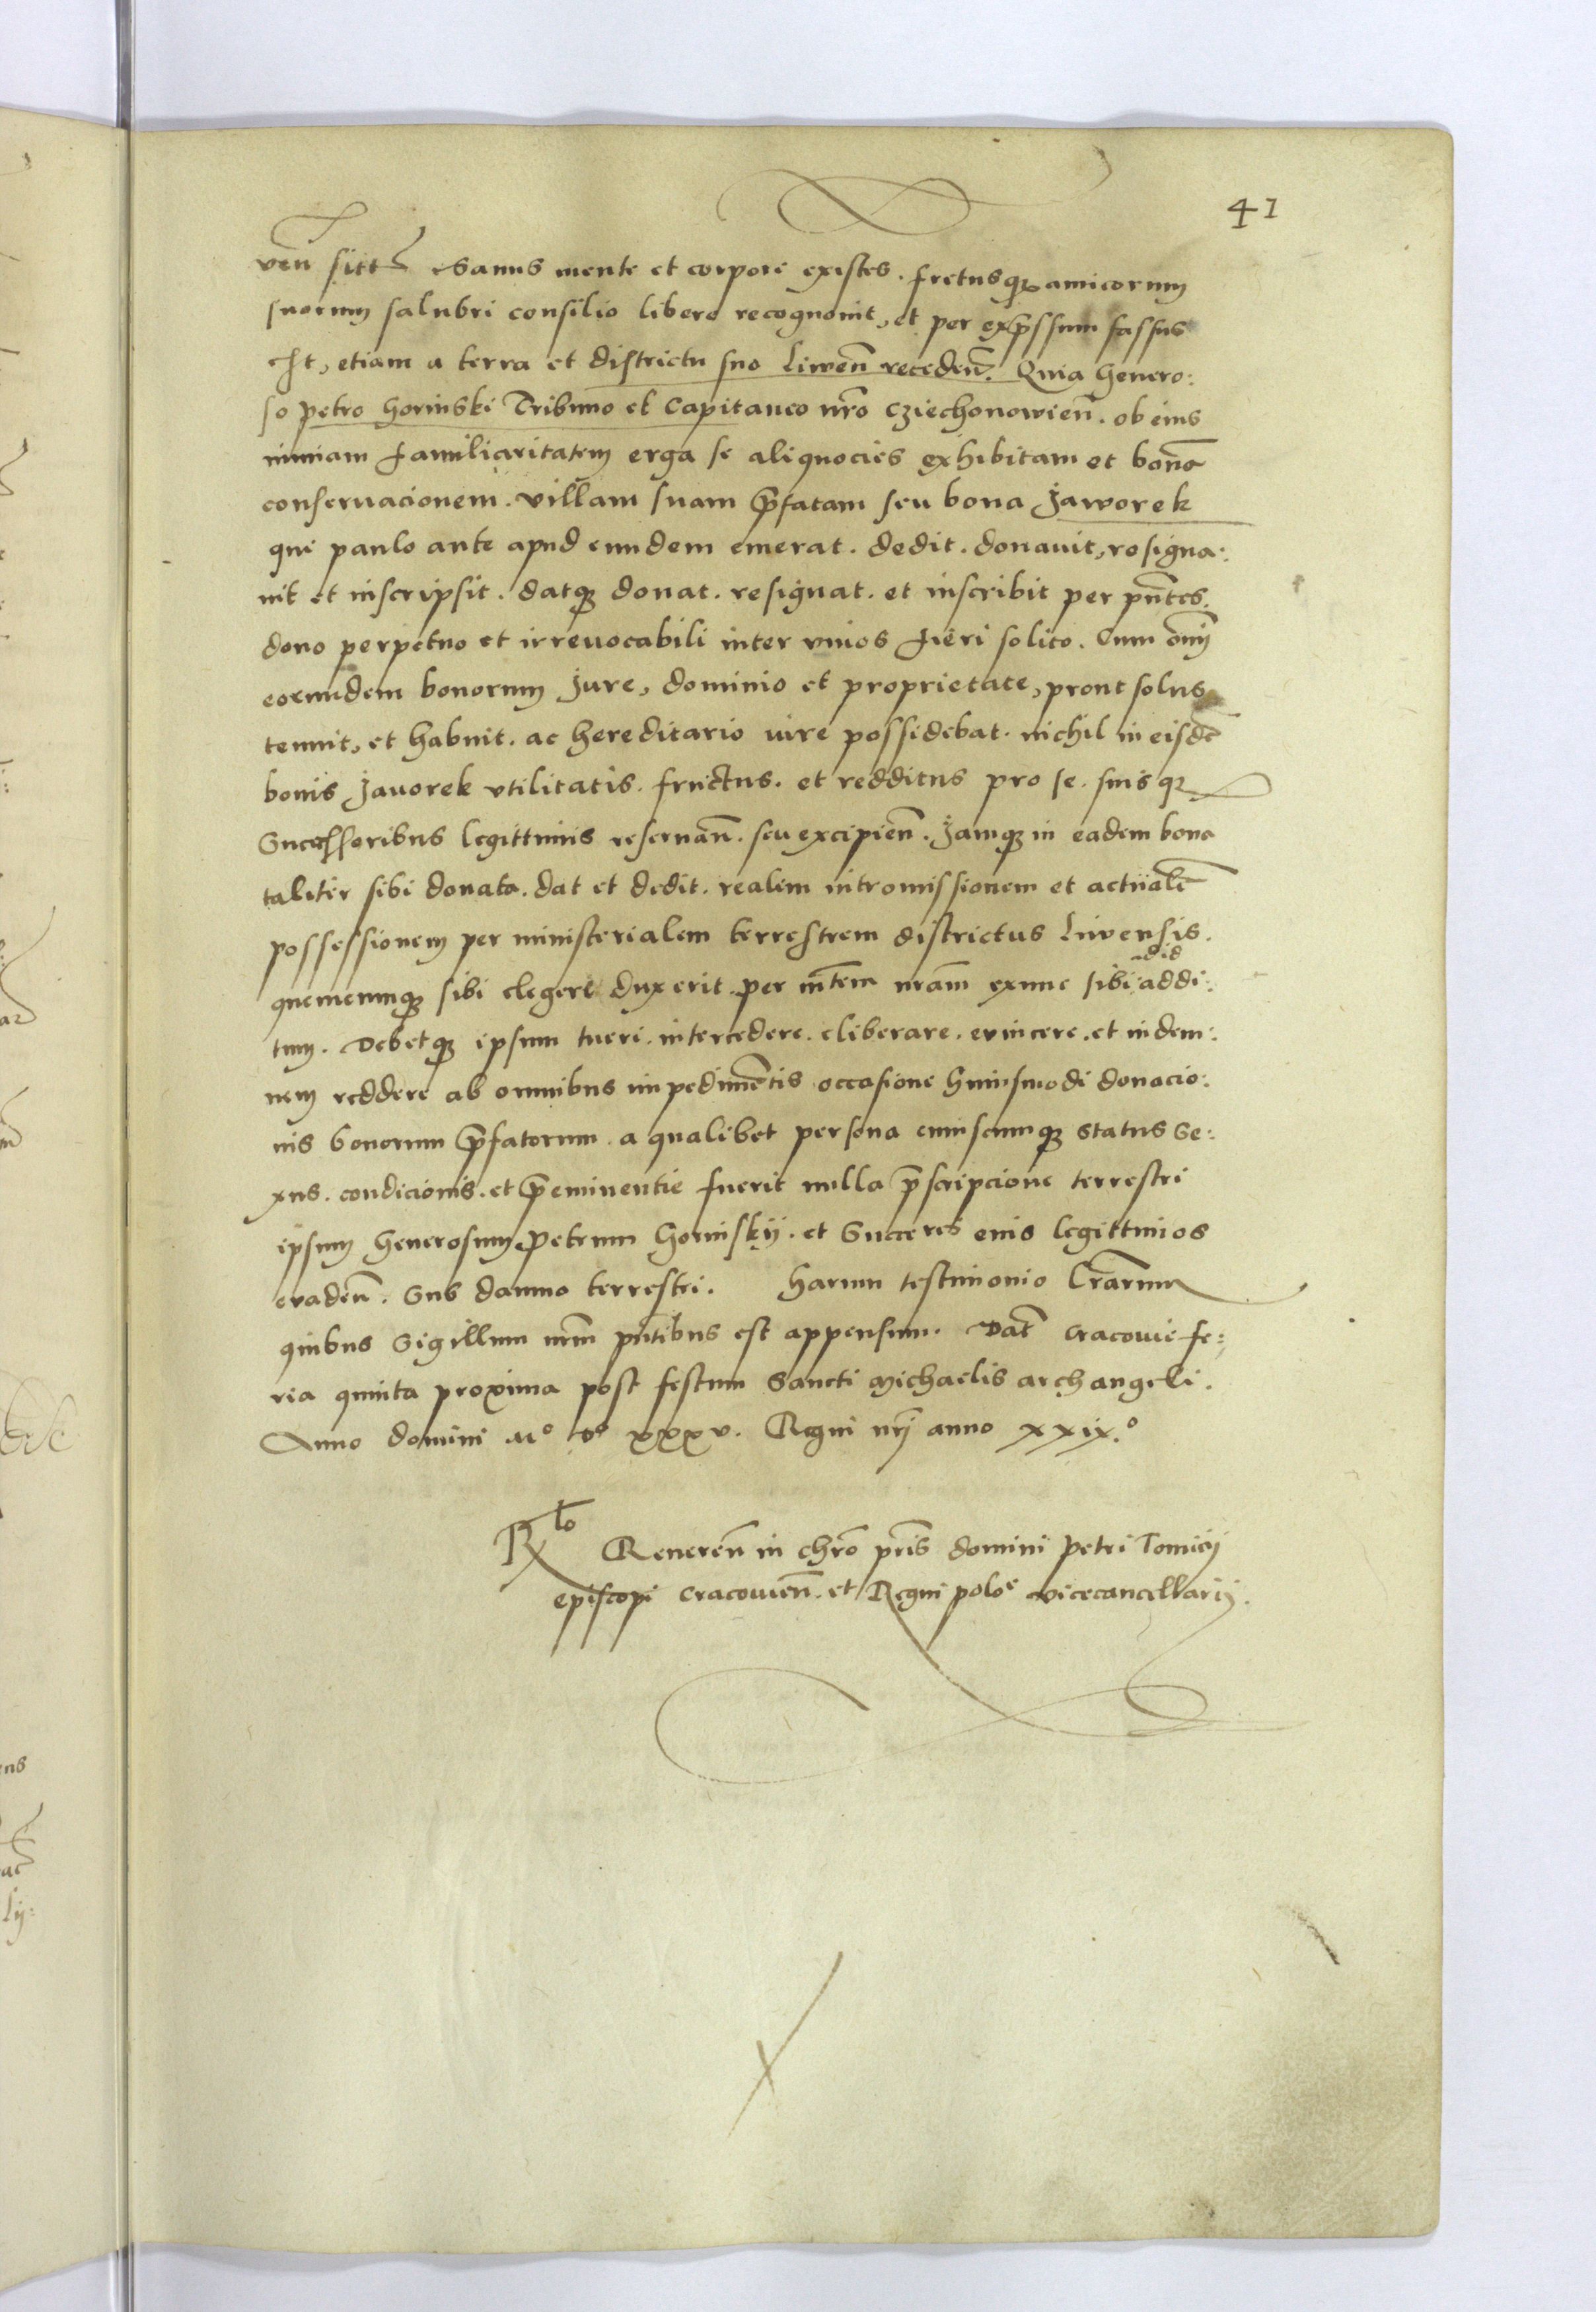 41
ven̄ sitt Sanus mente et corpore existēs. fretusq₃ amicorum
suorum salubri consilio libere recognouit, et per exp̄ssum fassus
est, etiam a terra et districtu suo Liwen̄ receden̄. Quia Genero:
so petro Gorinski Tribuno et Capitaneo nr̄o Cziechonowien̄. ob eius
nimiam familiaritatem erga se aliquocies exhibitam et bonā
conseruacionem. villam suam p̄fatam seu bona Jaworek
que paulo ante apud eundem emerat. dedit. donauit, resigna:
uit et inscripsit. datq₃ donat. resignat. et inscribit per pn̄tes.
dono perpetuo et irreuocabili inter viuos fieri solito. Cum om̄i
eorundem bonorum Jure, dominio et proprietate, prout solus
tenuit, et habuit. ac hereditario iure possidebat. nichil in eisdē
bonis Jauorek vtilitatis. fructus. et redditus pro se. suisq₃
Successoribus legittimis reseruan̄. seu excipien̄. Jamq₃ in eadem bona
taliter sibi donata. dat et dedit. realem intromissionem et actualē
possessionem per ministerialem terrestrem districtus Liwensis.
quemcumq₃ sibi elegere duxerit. per m̄tem nr̄am exnunc sibi addi:
tum. Debetq₃ ipsum tueri. intercedere. eliberare. euincere. et indem:
nem reddere ab omnibus impedimētis occasione huiusmodi donacio:
nis bonorum p̄fatorum. a qualibet persona cuiuscumq₃ status Se:
xus. condicionis. et p̄eminentie fuerit nulla p̄scripcione terrestri
ipsum Generosum Petrum Gorinskij. et Succeres eius legittimos
euaden̄. Sub damno terrestri. Harum testimonio Lr̄arum
quibus Sigillum nr̄m pn̄tibus est appensum. Dat̄ Cracouie fe:
ria quinta proxima post festum Sancti Michaelis archangeli.
Anno domini Mº Dº xxxv. Regni nr̄i anno xxixº.
Rlo Reueren̄ in chr̄o pr̄is domini Petri Tomicij
episcopi Cracouien̄. et Regni poloe vicecancellarij.